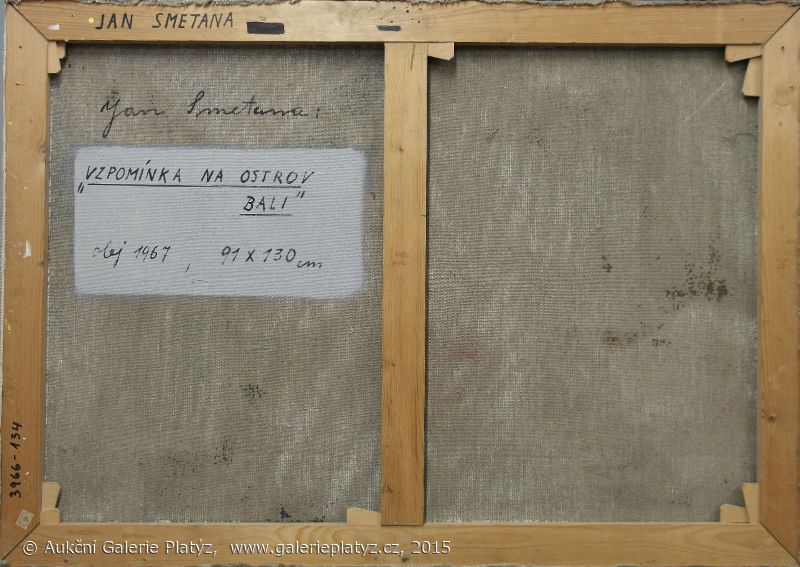 JAN SMETANA
Jan Smetana:
„VZPOMÍNKA NA OSTROV
BALI"
olej 1967, 91 x 130 cm
3966-134
© Aukční Galerie Platýz, www.galerieplatyz.cz, 2015